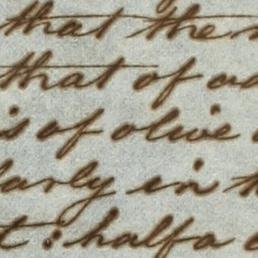 that the
that of
is of olive
larly in
t: halfa